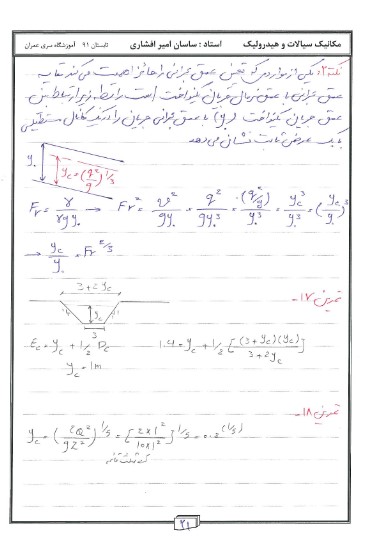 مکانیک سیالات و هیدرولیک استاد : ساسان امیر افشاری تابستان ۹۱ آموزشگاه سری عمران
نکته ۲: یکی از مواردی که نقش عمق بحرانی را حائز اهمیت می کند مقایسه
عمق بحرانی با عمق نرمال جریان یکنواخت است رابطه زیر ارتباط بین
عمق جریان یکنواخت (y₀) با عمق بحرانی جریان را در یک کانال مستطیلی
با یک عرض ثابت نشان می دهد
y₀ y_c = (q²/g)^1/3
Fr = v/√gy₀ → Fr² = v²/gy₀ = q²/gy₀³ = (q²/g)/y₀³ = y_c³/y₀³ = (y_c/y₀)³
→ y_c/y₀ = Fr^2/3
تمرین ۱۷-
3+2y_c
y_c
3
E_c = y_c + 1/2 D_c 1.4 = y_c + 1/2 [(3+y_c)(y_c)/3+2y_c]
y_c = 1m
تمرین ۱۸-
y_c = (2Q²/gZ²)^1/5 = [2×1²/10×1²]^1/5 = 0.2^(1/5)
۲۱